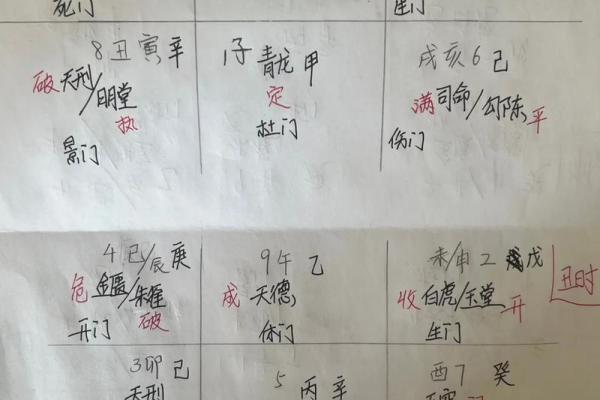 死门
生门
8 丑寅辛
破 天刑/明堂
执
景门
1子 甲
青龙
定
杜门
戌亥 6 己
满 司命/勾陈 平
伤门
4 巳/辰 庚
危 金匮/朱雀
破
开门
9午 乙
成 天德
休门
未/申 2 戊
收 白虎/玉堂 开
生门
丑时
3卯 己
天刑
5 丙 辛
酉 7 癸